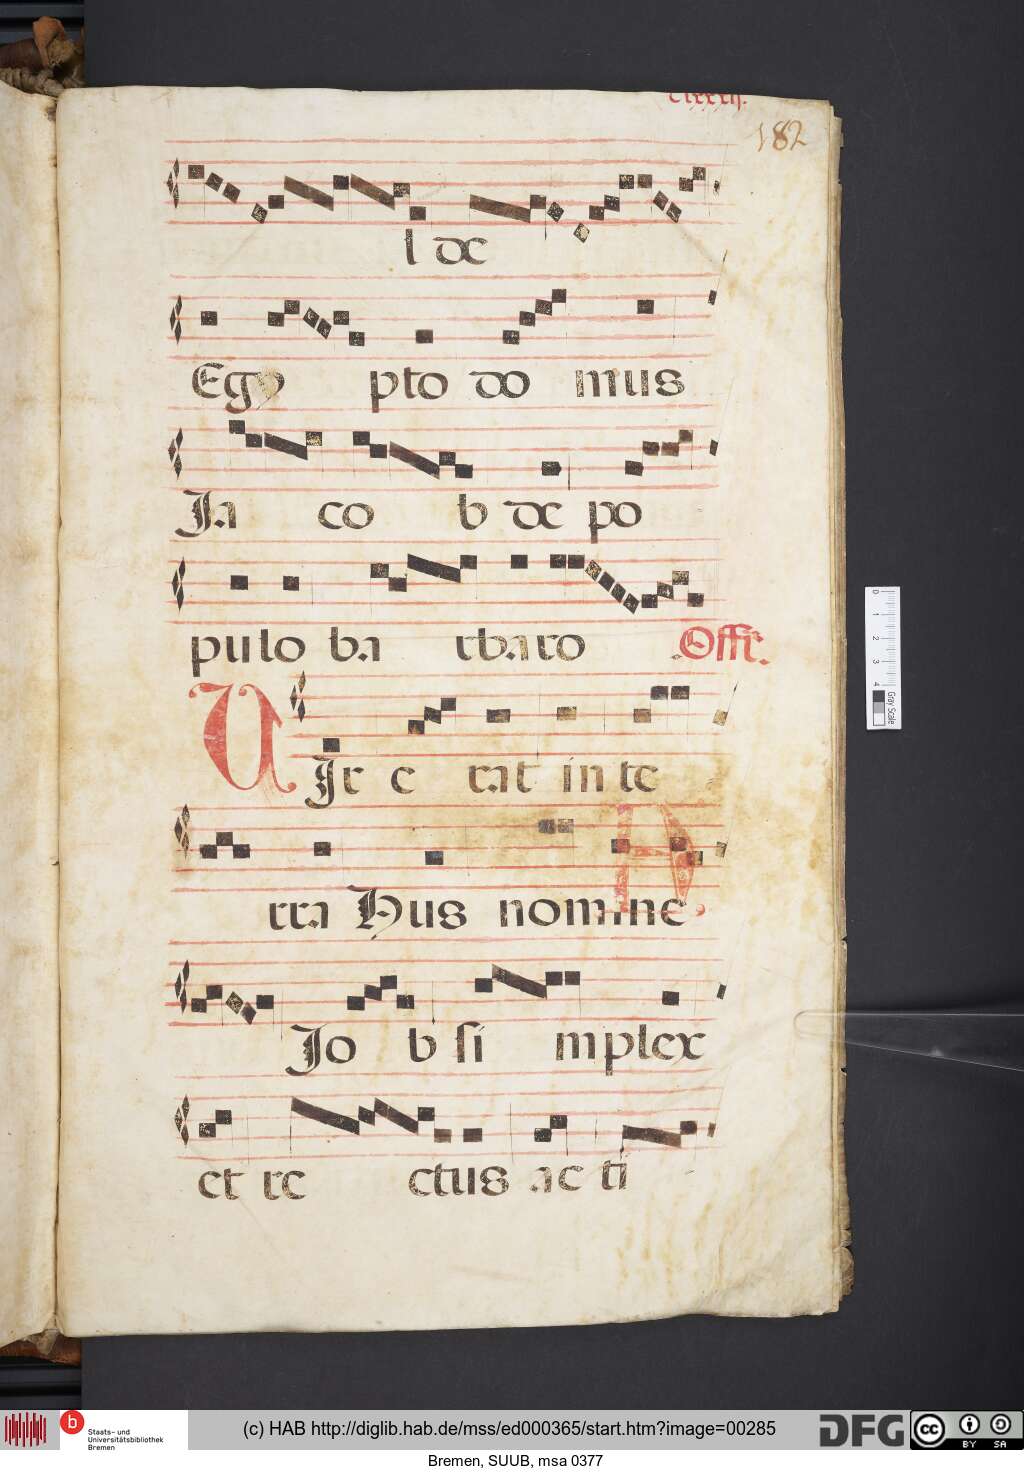 clxxxij.
182
l de
Egy pto do mus
Ja co b de po
pulo ba rbaro Offr.
VJr e rat in te
rra Hus nomine
Jo b si mplex
et re ctus ac ti
0 1 2 3 4
Gray Scale
b Staats- und
Universitätsbibliothek
Bremen
(c) HAB http://diglib.hab.de/mss/ed000365/start.htm?image=00285
DFG
cc BY SA
Bremen, SUUB, msa 0377